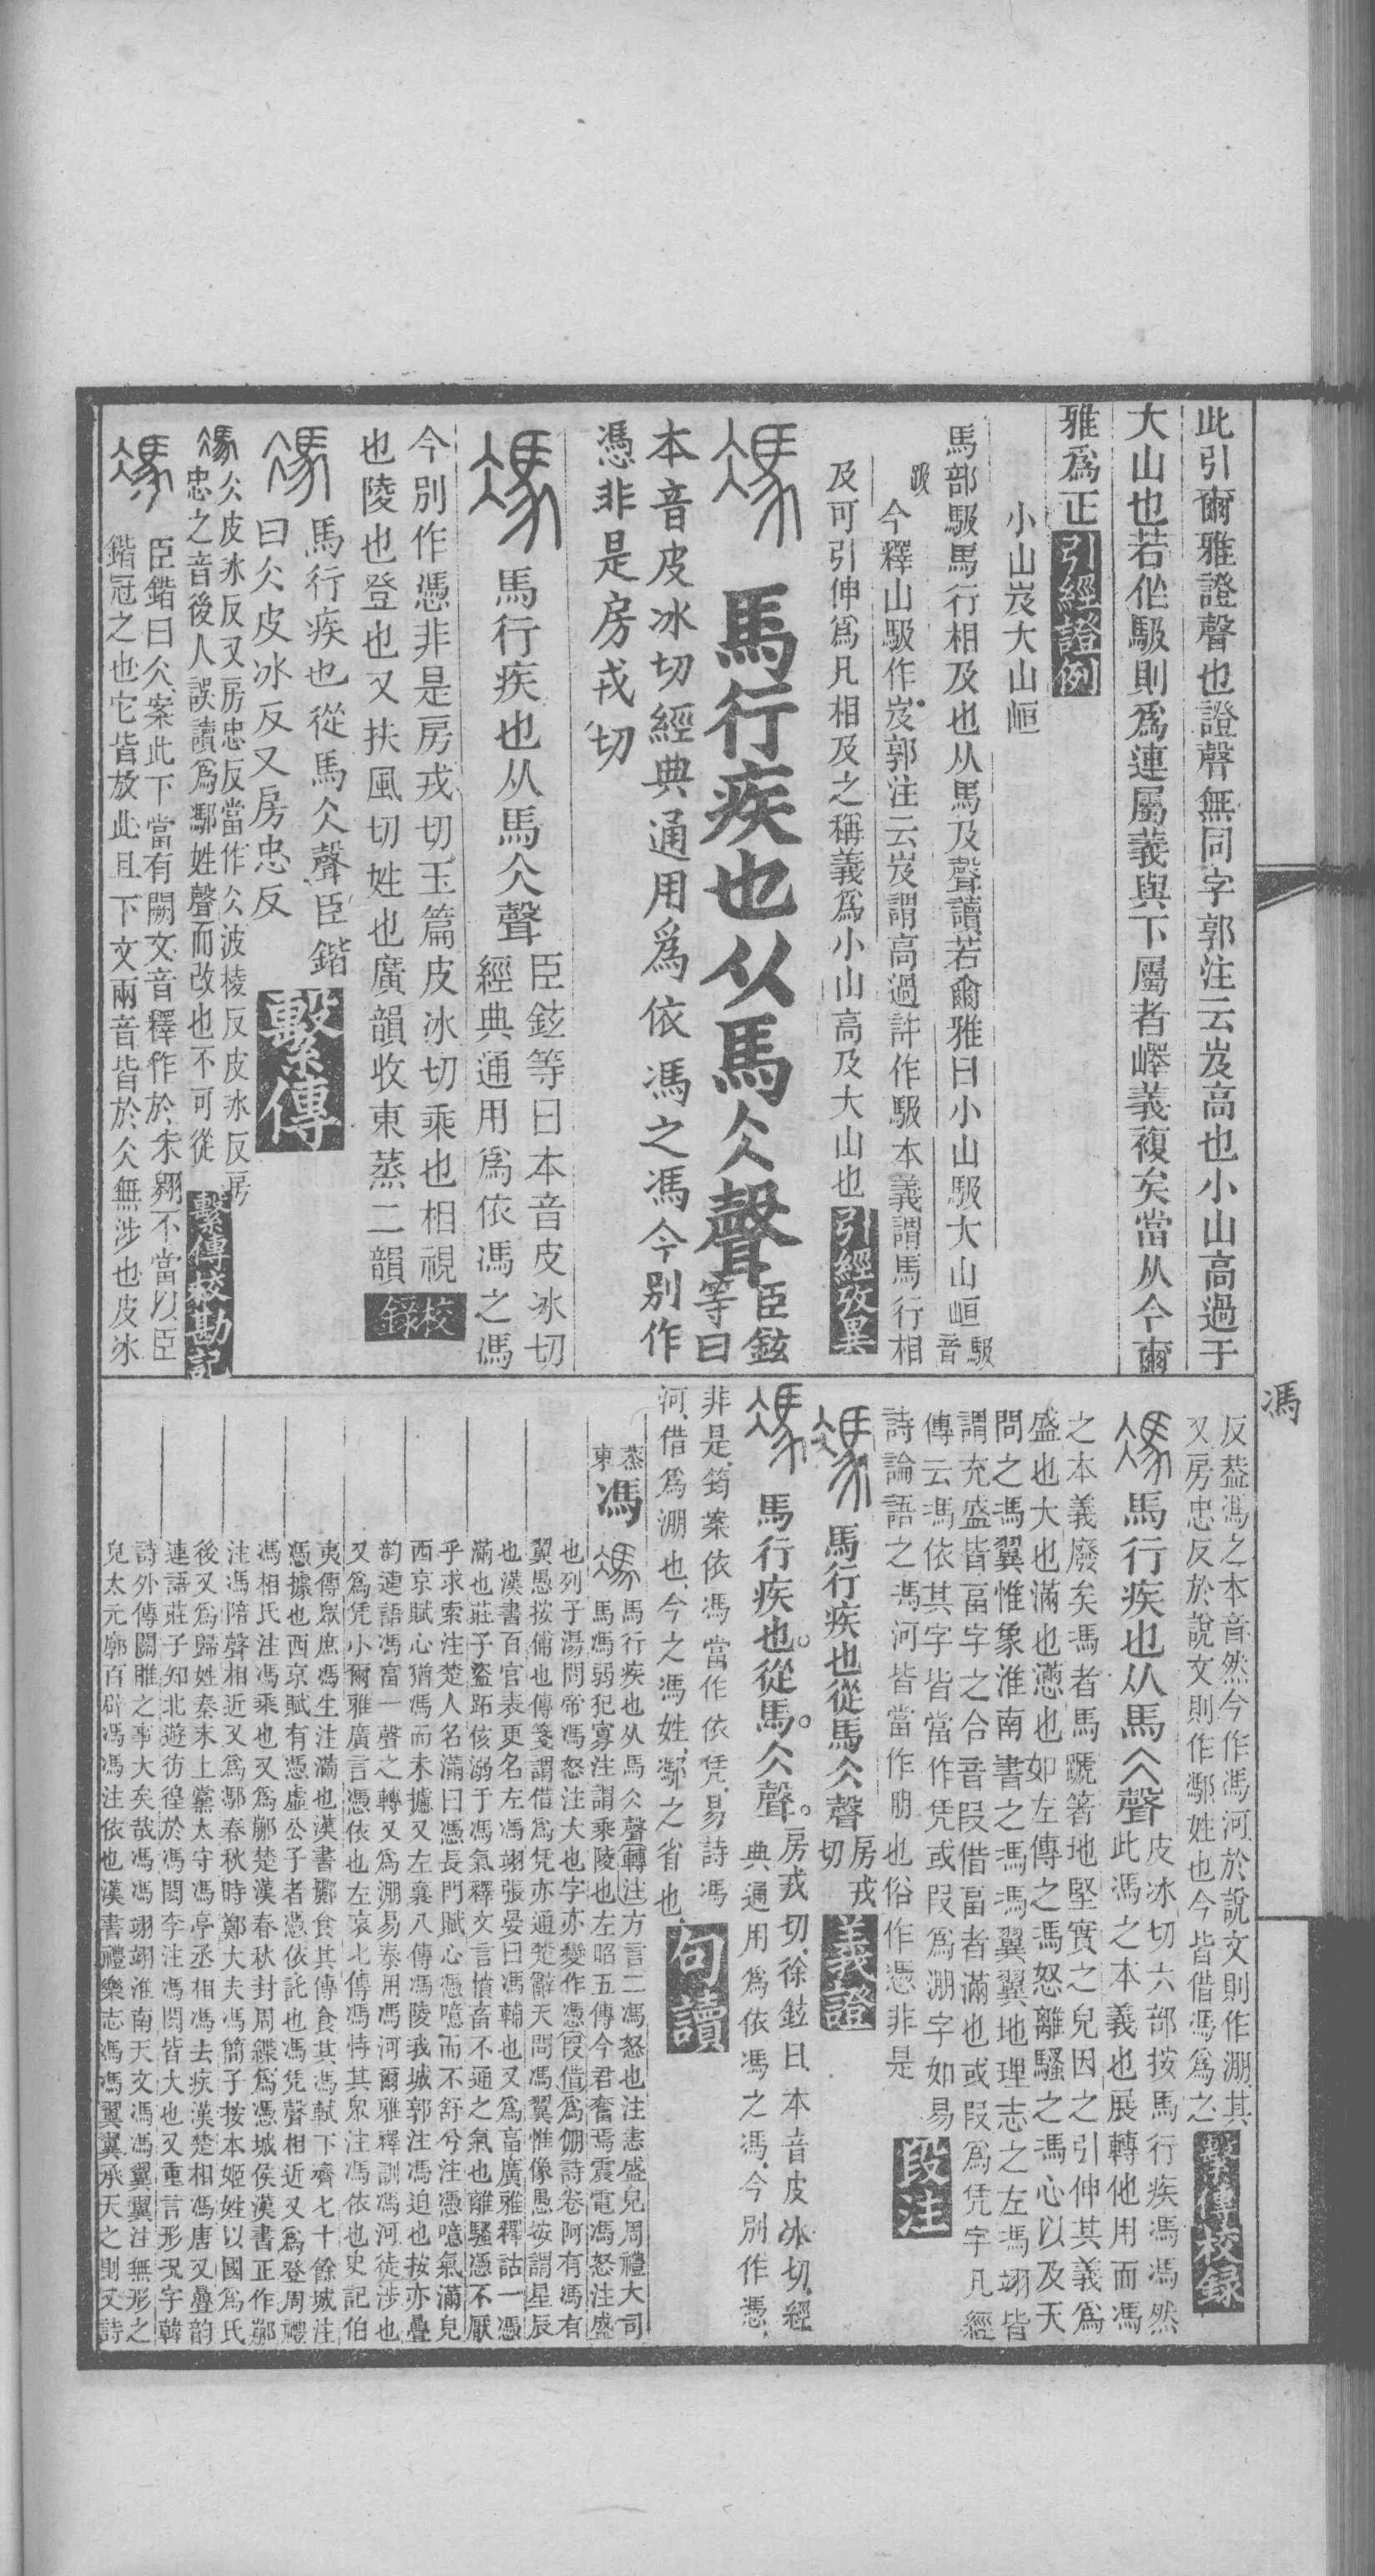 此引爾雅證聲也證聲無同字郭注云岌高也小山高過于
大山也若作馺則爲連屬義與下屬者嶧義複矣當从今爾
雅爲正引經證例
小山岌大山峘
馬部馺馬行相及也从馬及聲讀若爾雅曰小山馺大山峘音馺
馺今釋山馺作岌郭注云岌謂高過許作馺本義謂馬行相
及可引伸爲凡相及之稱義爲小山高及大山也引經攷異
馮馬行疾也从馬仌聲臣鉉等曰
本音皮冰切經典通用爲依馮之馮今別作
憑非是房戎切
馮馬行疾也从馬仌聲臣鉉等曰本音皮冰切
經典通用爲依馮之馮
今別作憑非是房戎切玉篇皮冰切乘也相視
也陵也登也又扶風切姓也廣韻收東蒸二韻校錄
馮馬行疾也從馬仌聲臣鍇
曰仌皮冰反又房忠反繫傳
馮仌皮冰反又房忠反當作仌波棱反皮冰反房
忠之音後人誤讀爲鄸姓聲而改也不可從繫傳校勘記
馮臣鍇曰仌案此下當有闕文音釋作於朱翱不當以臣
鍇冠之也它皆放此且下文兩音皆於仌無涉也皮冰
馮
反葢馮之本音然今作馮河於說文則作淜其
又房忠反於說文則作鄸姓也今皆借馮爲之繫傳校錄
馮馬行疾也从馬仌聲皮冰切六部按馬行疾馮馮然
此馮之本義也展轉他用而馮
之本義廢矣馮者馬蹏箸地堅實之皃因之引伸其義爲
盛也大也滿也懣也如左傳之馮怒離騷之馮心以及天
問之馮翼惟象淮南書之馮馮翼翼地理志之左馮翊皆
謂充盛皆畐字之合音叚借畐者滿也或叚爲凭字凡經
傳云馮依其字皆當作凭或叚爲淜字如易
詩論語之馮河皆當作淜也俗作憑非是段注
馮馬行疾也從馬仌聲房戎切義證
馮馬行疾也。從馬。仌聲。房戎切、徐鉉曰、本音皮冰切、經
典通用爲依馮之馮、今別作憑、
非是、筠案依馮當作依凭、易詩馮
河、借爲淜也、今之馮姓、鄸之省也、句讀
蒸東馮馮馬行疾也从馬仌聲轉注方言二馮怒也注恚盛皃周禮大司
馬馮弱犯寡注謂乘陵也左昭五傳今君奮焉震電馮怒注盛
也列子湯問帝馮怒注大也字亦變作憑叚借爲倗詩卷阿有馮有
翼愚按俌也傳箋謂借爲凭亦通楚辭天問馮翼惟像愚按謂星辰
也漢書百官表更名左馮翊張晏曰馮輔也又爲畐廣雅釋詁一憑
滿也莊子盜跖侅溺于馮氣釋文言憤畜不通之氣也離騷憑不厭
乎求索注楚人名滿曰憑長門賦心憑噫而不舒兮注憑噫氣滿皃
西京賦心猶馮而未攄又左襄八傳馮陵我城郭注馮迫也按亦疊
韵連語馮富一聲之轉又爲淜易泰用馮河爾雅釋訓馮河徒涉也
又爲凭小爾雅廣言憑依也左哀七傳馮恃其眾注馮依也史記伯
夷傳眾庶馮生注滿也漢書酈食其傳食其馮軾下齊七十餘城注
憑據也西京賦有憑虛公子者憑依託也馮凭聲相近又爲登周禮
馮相氏注馮乘也又爲鄸楚漢春秋封周緤爲憑城侯漢書正作鄸
注馮陪聲相近又爲鄸春秋時鄭大夫馮簡子按本姬姓以國爲氏
後又爲歸姓秦末上黨太守馮亭丞相馮去疾漢楚相馮唐又疊韵
連語莊子知北遊彷徨於馮閎李注馮閎皆大也又重言形況字韓
詩外傳關雎之事大矣哉馮馮翊翊淮南天文馮馮翼翼注無形之
皃太元廓百辟馮馮注依也漢書禮樂志馮馮翼翼承天之則又詩